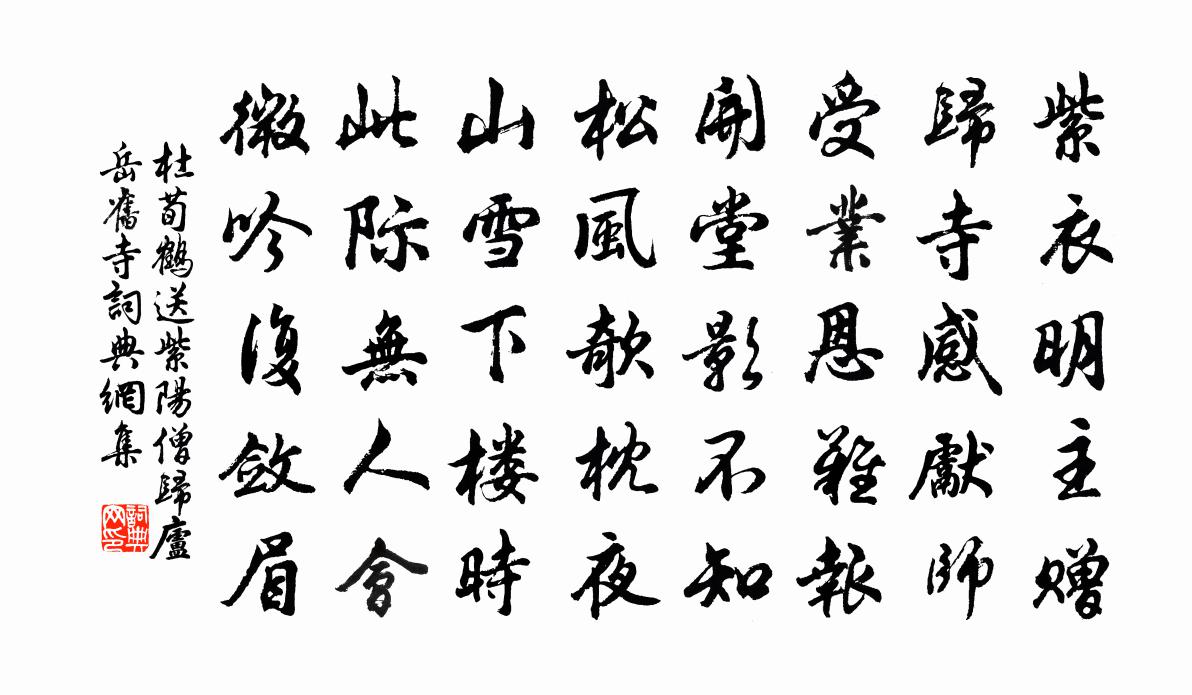 紫衣明主赠
歸寺感獻師
受業恩難報
開堂影不知
松風欹枕夜
山雪下楼時
此际無人會
微吟復斂眉
杜荀鶴送紫陽僧歸廬
岳舊寺詞典網集
詞典
网印